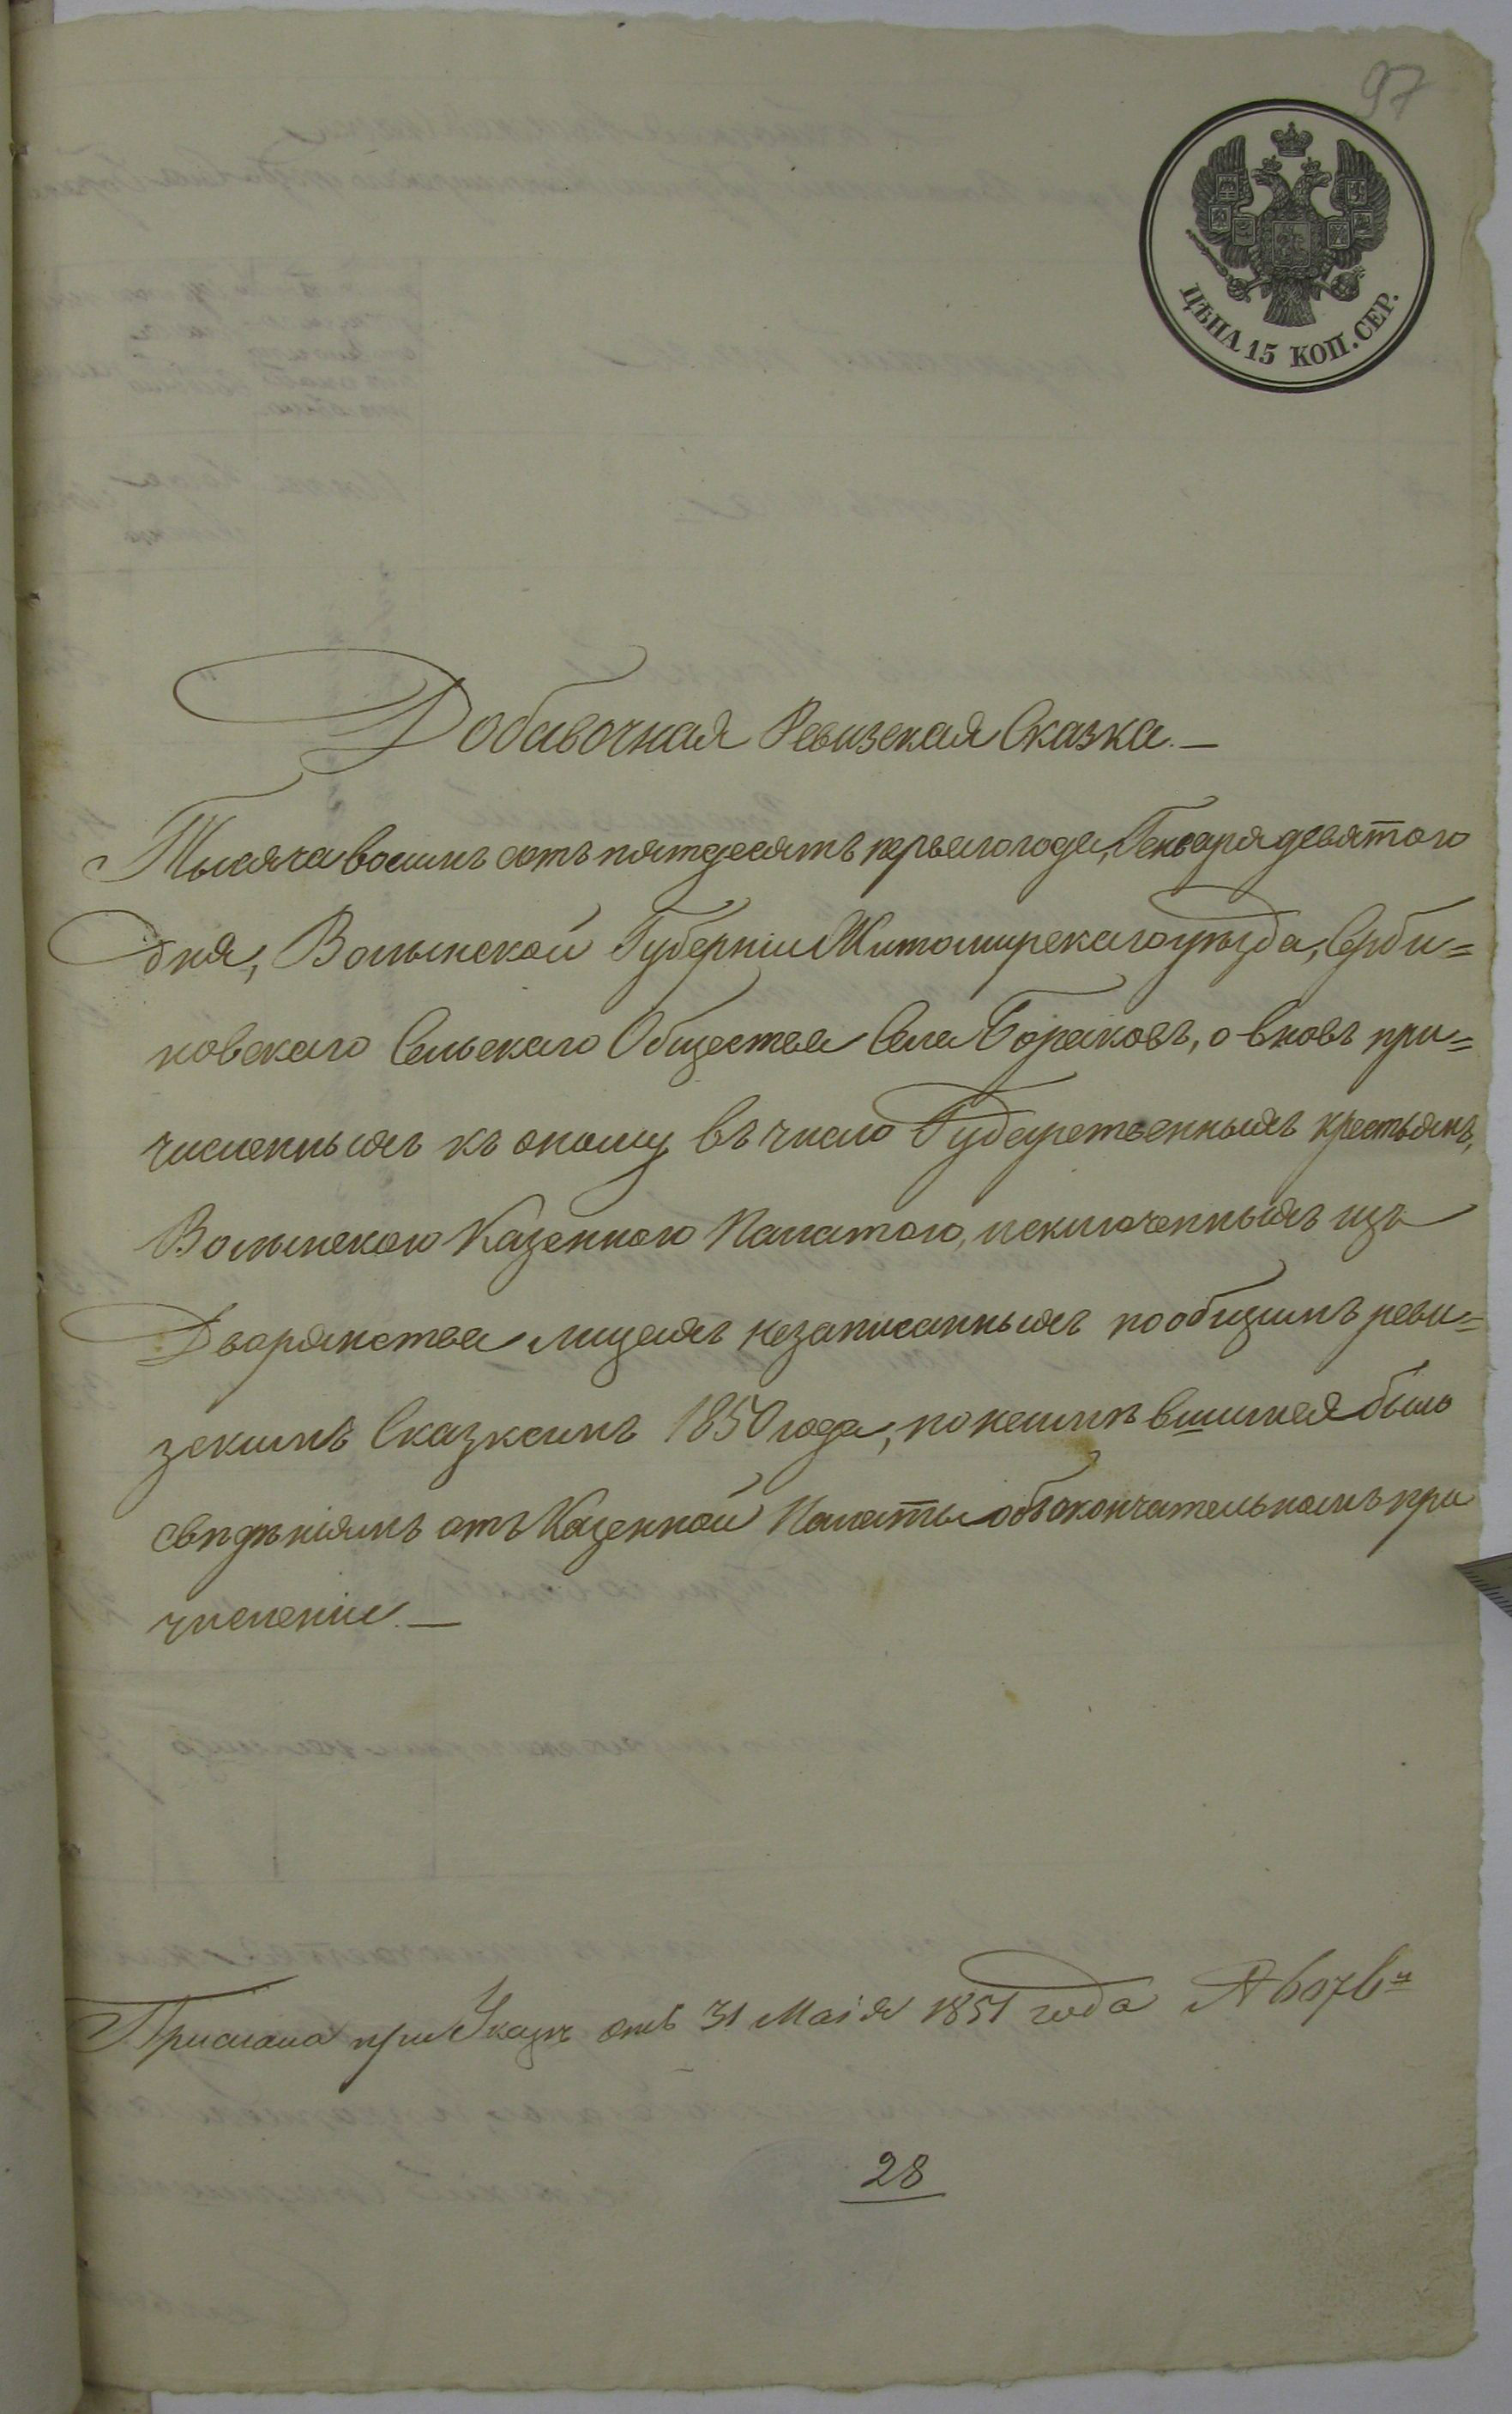 97
ЦѢНА 15 КОП. СЕР.
Добавочная Ревизская Сказка.—
Тысяча восимъ сотъ пятдесятъ перваго года, Генваря девятого
дня, Волынской Губерніи Житомирскаго уѣзда, Серби=
новскаго Сельскаго Общества Села, о вновь при=
численныхъ къ оному въ число Государственныхъ крестьянъ,
Волынскою Казенною Палатою, исключенныхъ изъ
Дворянства лицахъ незаписанныхъ по общимъ реви=
зскимъ Сказкамъ 1850 года, по неимѣвшимся было
свѣдѣніямъ отъ Казенной Палаты объ окончательномъ при
численіи.—
Прислана при Указѣ отъ 31 Маія 1851 года №
28